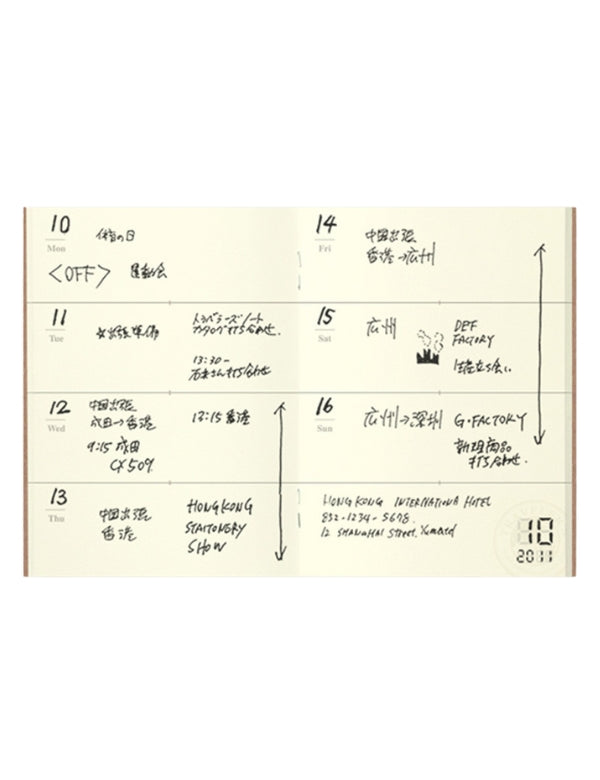 10
Mon
体育の日
<OFF> 運動会
11
Tue
☆出張準備
トラベラーズノート
カタログ打ち合わせ.
13:30-
打ち合わせ
12
Wed
中国出張
成田→香港
9:15 成田
CX509
13:15 香港
13
Thu
中国出張
香港
HONGKONG
STAITONERY
SHOW
14
Fri
中国出張
香港→広州
15
Sat
広州
DEF
FACTORY
立ち会い
16
Sun
広州→深圳
G・FACTORY
新規商品
打ち合わせ.
HONG KONG INTERNATIONA HOTEL
852-1234-5678.
12 SHANGHAI STREET.
10
2011